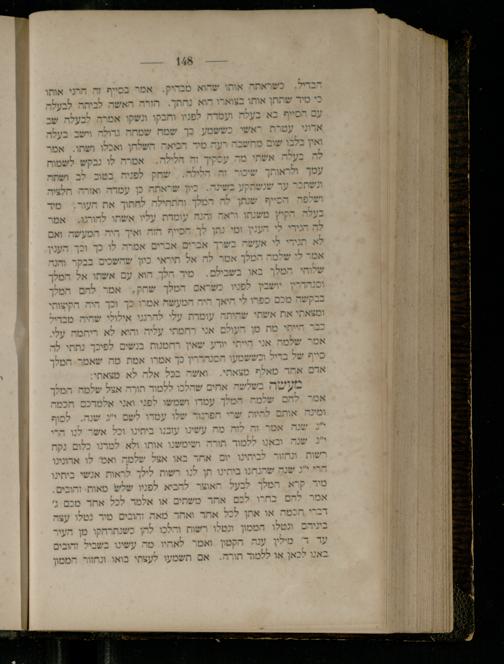 — 148 —
הבדיל. כשראתה אותו שהוא מבהיק. אמר בסייף זה הרגי אותו
כי מיד שתתן אותו בצוארו הוא נחתך. חזרה האשה לביתה לבעלה
עם הסייף בא בעלה ועמדה לפניו וחבקו ונשקו אמרה לבעלה שב
אדוני עטרת ראשי כששמע כך שמח שמחה גדולה וישב בעלה
ואין בלבו שום מחשבה רעה מיד הביאה השלחן ואכלו ושתו. אמר
לה בעלה אשתי מה עסקיך זה הלילה. אמרה לו נבקש לשמוח
עמך ולראותך שיכור זה הלילה. שחק לפניה בטוב לב ושתה
ונשתכר עד שנשתקע בשינה. כיון שראתה כן עמדה ואזרה חלציה
ושלפה הסייף שנתן לה המלך והתחילה לחתוך את העור, מיד
בעלה הקיץ משנתו וראה והנה עומדת עליו אשתו להורגו. אמר
לה הגידי לי הענין ומי נתן לך הסייף הזה ואיך היה המעשה ואם
לא תגידי לי אעשה בשרך אברים אברים אמרה לו כך וכך הענין
אמר לי שלמה המלך אמר לה אל תיראי כיון שהשכים בבקר והנה
שלוחי המלך באו בשבילם. מיד הלך הוא עם אשתו אל המלך
וסנהדרין יושבין לפניו כשראם המלך שחק, אמר להם המלך
בבקשה מכם ספרו לי היאך היה המעשה אמרו כך וכך היה הקיצותי
ומצאתי את אשתי שהיתה עומדת עלי להרגני אילולי שהיה מבדיל
כבר הייתי מת מן העולם אני רחמתי עליה והיא לא ריחמה עלי.
אמר שלמה אני הייתי יודע שאין רחמנות בנשים לפיכך נתתי לה
סייף של בדיל וכששמעו הסנהדרין כך אמרו אמת מה שאמר המלך
אדם אחד מאלף מצאתי. ואשה בכל אלה לא מצאתי:
מעשה בשלשה אחים שהלכו ללמוד תורה אצל שלמה המלך
אמר להם שלמה המלך עמדו ושמשו לפני ואני אלמדכם חכמה
ומינה אותם להיות שרי הפרגוד שלו עמדו לשם י״ג שנה. לסוף
י״ג שנה אמר זה לזה מה עשינו עזבנו ביתינו וכל אשר לנו הרי
י״ג שנה ובאנו ללמוד תורה ושימשנו אותו ולא למדנו כלום נקח
רשות ונחזור לביתינו יום אחד באו אצל שלמה ואמ׳ לו אדונינו
הרי י״ג שנה שהנחנו ביתינו תן לנו רשות לילך לראות אנשי ביתינו
מיד קרא המלך לבעל האוצר להביא לפניו שלש מאות זהובים.
אמר להם בחרו לכם אחד משתים או אלמד לכל אחד מכם ג׳
דברי חכמה או אתן לכל אחד ואחד מאה זהובים מיד נטלו עצה
ביניהם ונטלו הממון ונטלו רשות והלכו להן כשנתרחקו מן העיר
עד ד׳ מילין ענה הקטון ואמר לאחיו מה עשינו בשביל זהובים
באנו לכאן או ללמוד תורה. אם תשמעו לעצתי בואו ונחזור הממון